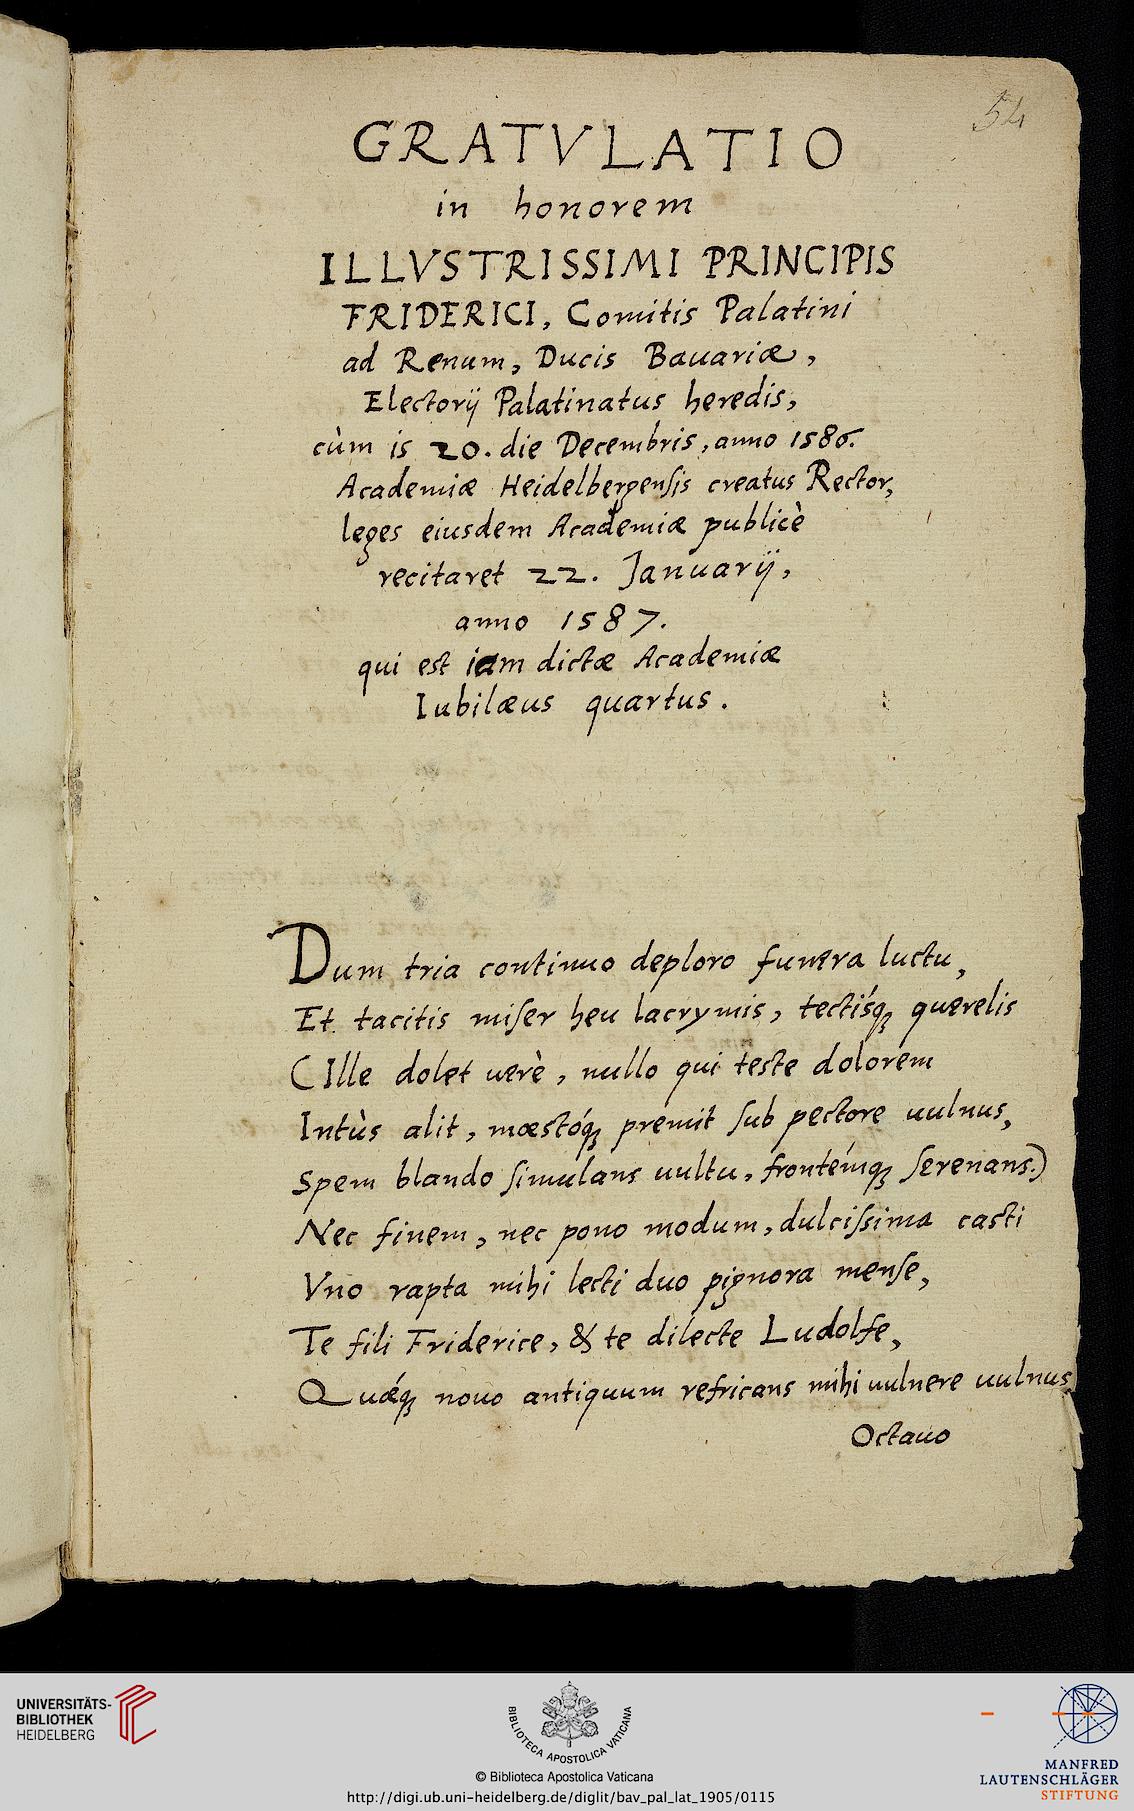 54
GRATVLATIO
in honorem
ILLVSTRISSIMI PRINCIPIS
FRIDERICI, Comitis Palatini
ad Renum, Ducis Bauariæ,
Electorij Palatinatus heredis,
cùm is 20. die Decembris, anno 1586.
Academiæ Heidelbergenſis creatus Rector,
leges eiusdem Academiæ publicè
recitaret 22. Januarij,
anno 1587.
qui est iam dictæ Academiæ
Iubilæus quartus.
Dum tria continuo deploro funera luctu,
Et tacitis miſer heu lacrymis, tectísq́ querelis
(Ille dolet uerè, nullo qui teste dolorem
Intùs alit, mœstóq́ premit ſub pectore uulnus,
Spem blando ſimulans uultu, frontémq́ ſerenans.)
Nec finem, nec pono modum, dulciſsima casti
Vno rapta mihi lecti duo pignora menſe,
Te fili Friderice, & te dilecte Ludolfe,
Quǽq́ nouo antiquum refricans mihi uulnere uulnus
Octauo
UNIVERSITÄTS-
BIBLIOTHEK
HEIDELBERG
BIBLIOTECA APOSTOLICA VATICANA
© Biblioteca Apostolica Vaticana
http://digi.ub.uni-heidelberg.de/diglit/bav_pal_lat_1905/0115
MANFRED
LAUTENSCHLÄGER
STIFTUNG